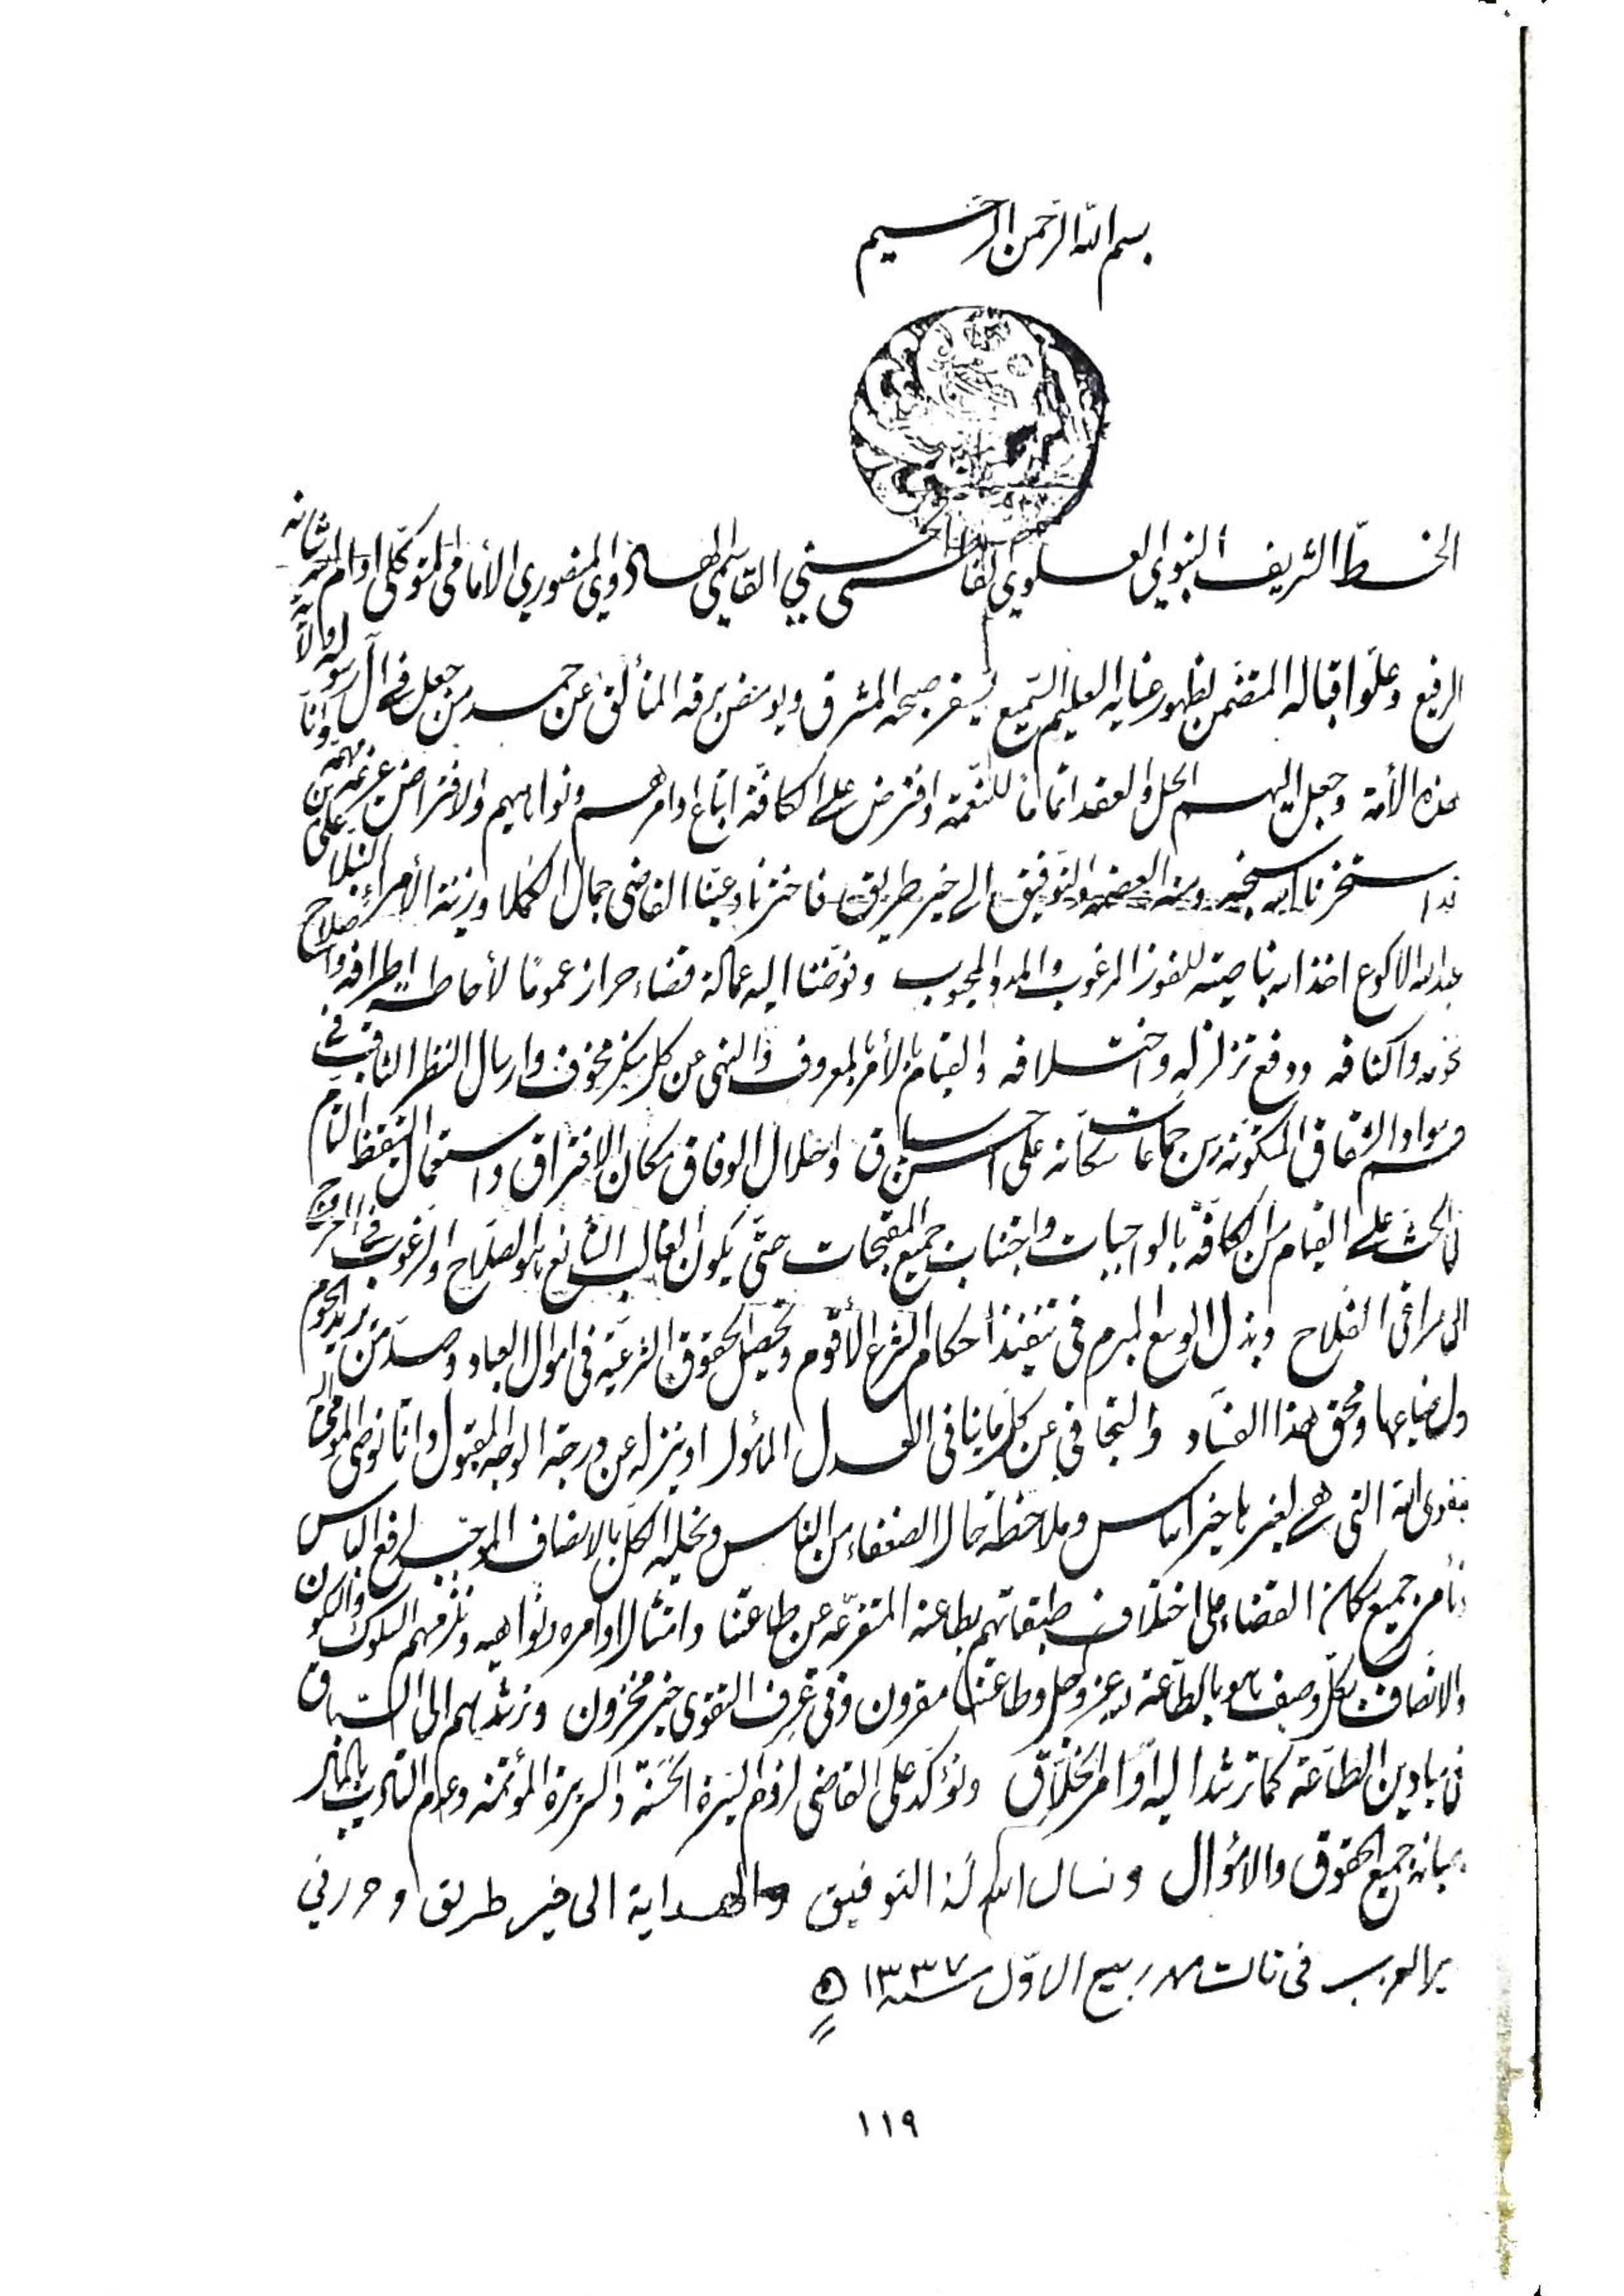 بسم الله الرحمن الرحيم
الخط الشريف النبوي العلوي الفاطمي الحسني القاسمي الهادوي المنصوري الأمامي المتوكلي ادام الله شانه
الرفيع وعلو اقباله المتضمن لظهور عناية العليم السميع يسفر صبحه المشرق ويومض برقه المتألق عن حمد من جعل في آل رسوله ولاية
هذه الأمة وجعل اليهم الحل والعقد اتماما للنعمة وافترض على الكافة اتباع اوامرهم ونواهيهم والافتراض عزيمة مهمة وانا
قد استخرنا الله سبحنه ومنه العصمة والتوفيق الى خير طريق فاخترنا وعينا القاضي جمال الكملا وزينة الأمراء النبلا علي بن
عبد الله الاكوع اخذ الله بناصيته للفوز المرغوب والمدد المحبوب وفوضنا اليه عمالة قضاء حراز عموما لأحاطة اطرافه واصلاح
نحوه واكنافه ودفع تزلزله واختلافه والقيام بالأمر بالمعروف والنهي عن كل منكر مخوف وارسال النظر الثاقب في
حسم مواد الشقاق المتكونة من جماعات سكانه على احسن مساق واحلال الوفاق مكان الافتراق واستعمال التيقظ التام
في الحث على القيام من الكافة بالواجبات واجتناب جميع المقبحات حتى يكون الغالب الشائع هو الصلاح والرغوب في العروج
الى مراقي الفلاح وبذل الوسع المبرم في تنفيذ أحكام الشرع الأقوم وتحصيل الحقوق الشرعية في اموال العباد وصد من يريد الحوم
ول ضياعها ومحق هذا الفساد والتجافي عن كل ما ينافي العدل المأمول او ينزله عن درجة الوجه المقبول وانا نوصي المومى اليه
بتقوى الله التي هي لغيرها خير اساس وملاحظة حال الضعفاء من الناس وتحلية الكل بالانصاف الموجب لرفع الباس
ونأمر جميع سكان القضاء على اختلاف طبقاتهم بطاعته المتفرعة عن طاعتنا وامتثال اوامره ونواهيه ونلزمهم السلوك والسكون
والاتصاف بكل وصف هو بالطاعة لله عز وجل وطاعتنا مقرون وفي غرف التقوى خير مخزون ونرشدهم الى السباق
في ميادين الطاعة كما ترشد اليه اوامر الخلاق ونؤكد على القاضي لزوم السيرة الحسنة والسريرة المؤتمنة وعدم التاديب بالمال
وصيانة جميع الحقوق والاموال ونسال الله لنا وله التوفيق والهداية الى خير طريق وحرر في
في ثالث شهر ربيع الاول سنة ١٣٣٧
١١٩